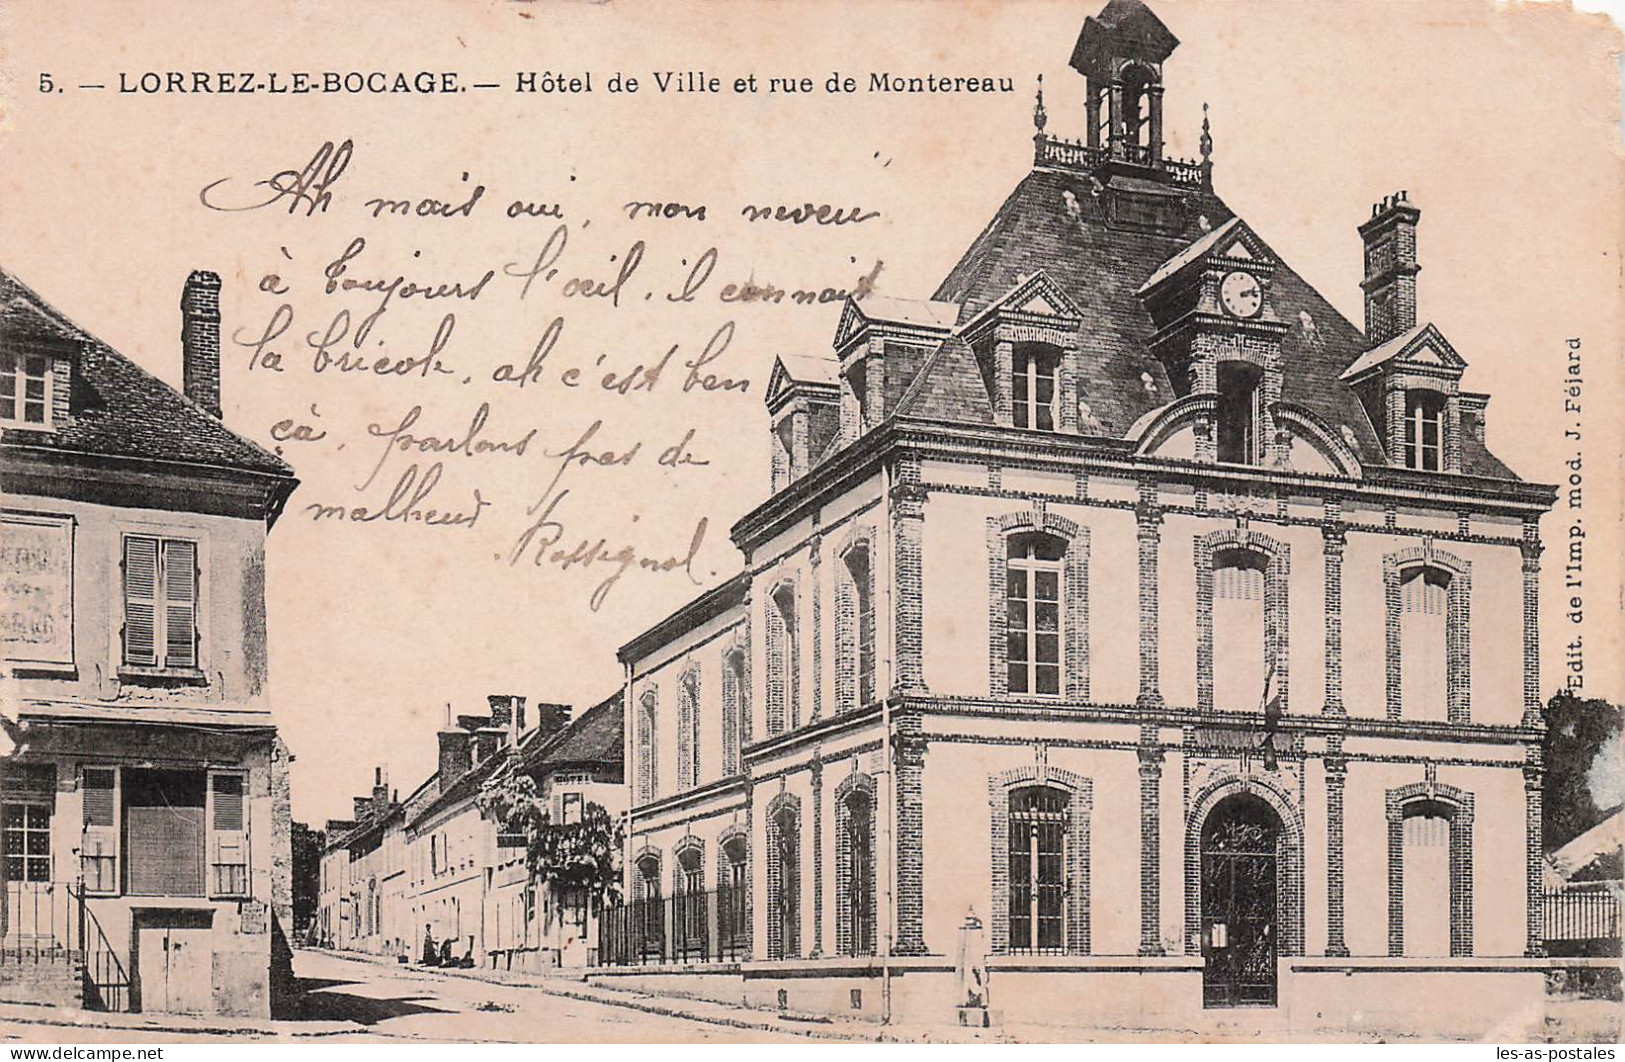 5. — LORREZ-LE-BOCAGE. — Hôtel de Ville et rue de Montereau
Ah mais oui, mon neveu
à toujours l'œil, il connait
la bricole, ah c'est ben
çà, parlons pas de
malheur
Rossignol.
Edit. de l'Imp. mod. J. Féjard
HOTEL
les-as-postales.com